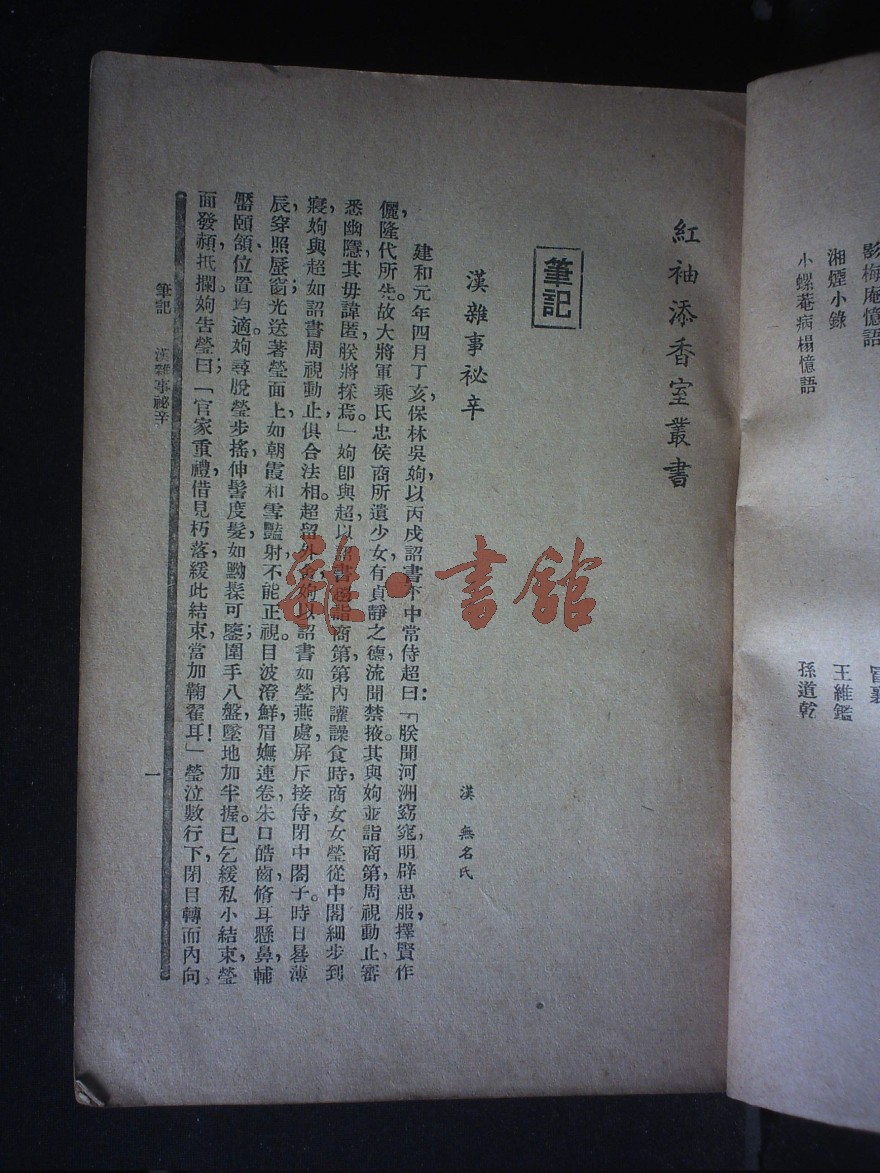 影梅庵憶語
冒襄
湘煙小錄
王維鑑
小螺菴病榻憶語
孫道乾
紅袖添香室叢書
筆記
漢雜事祕辛
漢 無名氏
建和元年四月丁亥,保林吳姁,以丙戌詔書下中常侍超曰:「朕聞河洲窈窕,明辟思服,擇賢作
儷,隆代所先。故大將軍乘氏忠侯商所遺少女,有貞靜之德,流聞禁掖。其與姁並詣商第,周視動止,審
悉幽隱,其毋諱匿,朕將採焉。」姁卽與超以詔書趨詣商第。第內讙譟食時,商女女瑩從中閣細步到
寢,姁與超如詔書周視動止,俱合法相。超留外舍,姁以詔書如瑩燕處,屏斥接侍,閉中閣子。時日晷薄
辰,穿照蜃窗;光送著瑩面上,如朝霞和雪豔射,不能正視。目波澄鮮,眉嫵連卷,朱口皓齒,脩耳懸鼻,輔
靨頤頷,位置均適。姁尋脫瑩步搖,伸髻度髮,如黝髹可鑒;圍手八盤,墜地加半握。已乞緩私小結束,瑩
面發赬抵攔。姁吿瑩曰:「官家重禮,借見朽落,緩此結束,當加鞠翟耳!」瑩泣數行下,閉目轉而內向。
筆記 漢雜事祕辛
一
雜·書館